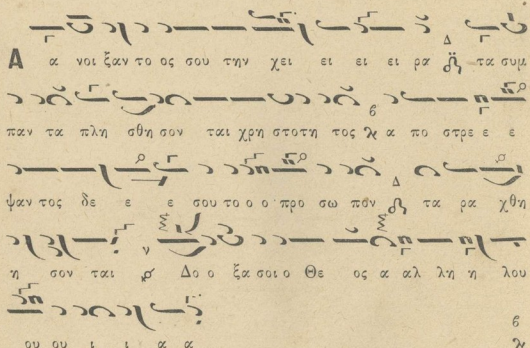 Α α νοι ξαν το ος σου την χει ει ει ει ρα τα συμ
παν τα πλη σθη σον ται χρη στοτη τος α πο στρε ε ε
ψαν τος δε ε ε σου το ο ο προ σω πον τα ρα χθη
η σον ται Δο ο ξα σοι ο Θε ος α αλ λη η λου
ου ου ι ι α α